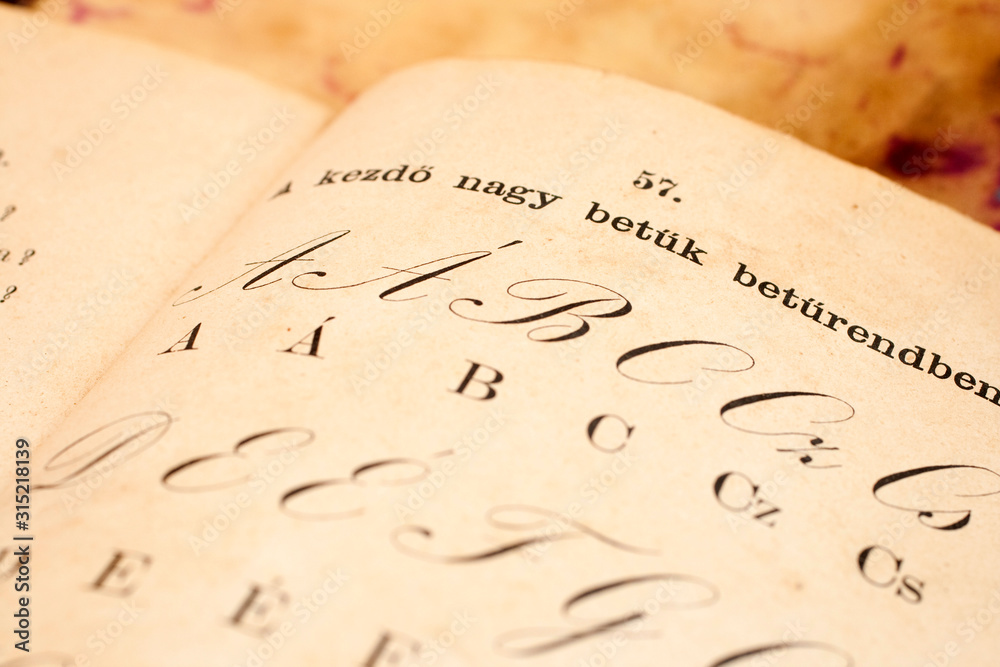 57.
A kezdő nagy betűk betűrendben
A Á B C Cz Cs
A Á B C Cz Cs
D E É F G
E É F
?
?
?
Adobe Stock | #315218139